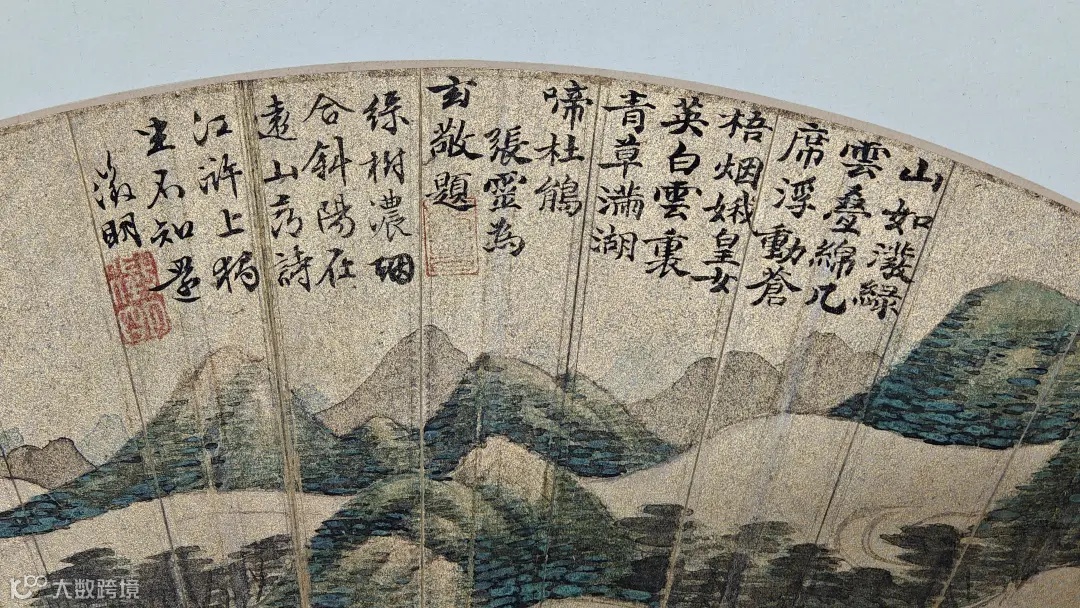 山如潑綠
雲疊綿几
席浮動蒼
梧烟娥皇女
英白雲裏
青草滿湖
啼杜鵑
張靈為
玄敬題
綠樹濃烟
合斜陽在
遠山詩
江滸上獨
坐不知還
徵明
大数跨境